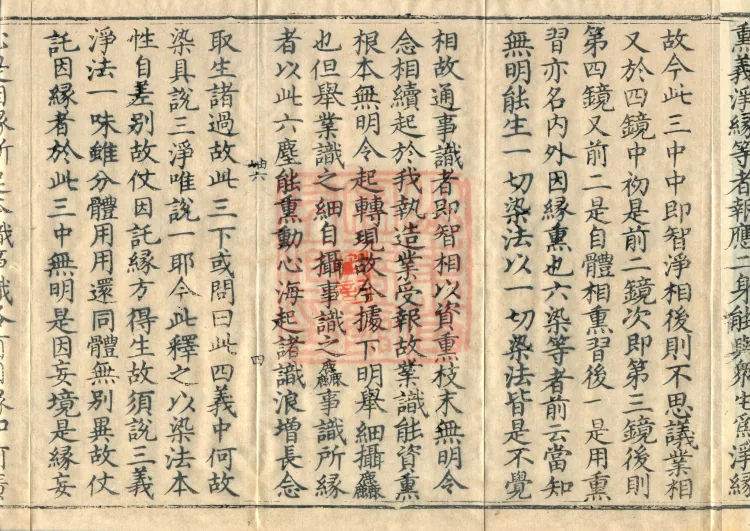 熏義淨縁等者報應二身能與衆生爲淨縁
故今此三中中即智淨相後則不思議業相
又於四鏡中初是前二鏡次即第三鏡後則
第四鏡又前二是自體相熏習後一是用熏
習亦名内外因縁熏也六染等者前云當知
無明能生一切染法以一切染法皆是不覺
相故通事識者即智相以資熏枝末無明令
念相續起於我執造業受報故業識能資熏
根本無明令起轉現故今據下明舉細攝麤
也但舉業識之細自攝事識之麤事識所縁
者以此六塵能熏動心海起諸識浪增長念
岫六
四
取生諸過故此三下或問曰此四義中何故
染具說三淨唯說一耶今此釋之以染法本
性自差別故仗因託縁方得生故須說三義
淨法一味雖分體用用還同體無別異故仗
託因縁者於此三中無明是因妄境是縁妄